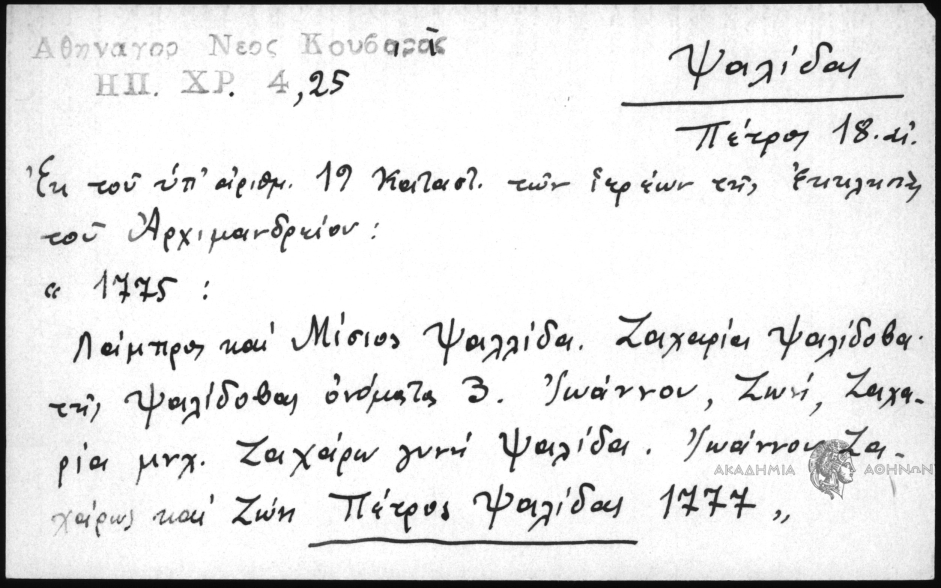 Αθηναγορ Νεος Κουβαρᾶς
ΗΠ. ΧΡ. 4,25
Ψαλίδας
Πέτρος 18. αἰ.
Ἐκ τοῦ ὑπ' ἀριθμ. 19 Καταστ. τῶν ἱερέων τῆς Ἐκκλησίας
τοῦ Ἀρχιμανδρείου:
« 1775 :
Λάμπρος καὶ Μίσιος Ψαλλίδα. Ζαχαρία Ψαλίδοβα.
τῆς Ψαλίδοβας ὀνόματα 3. Ἰωάννου, Ζωή, Ζαχα-
ρία μνχ. Ζαχάρω γυνή Ψαλίδα. Ἰωάννου Ζα-
χάρως καὶ Ζώη Πέτρος Ψαλίδας 1777 „
ΑΚΑΔΗΜΙΑ ΑΘΗΝΩΝ